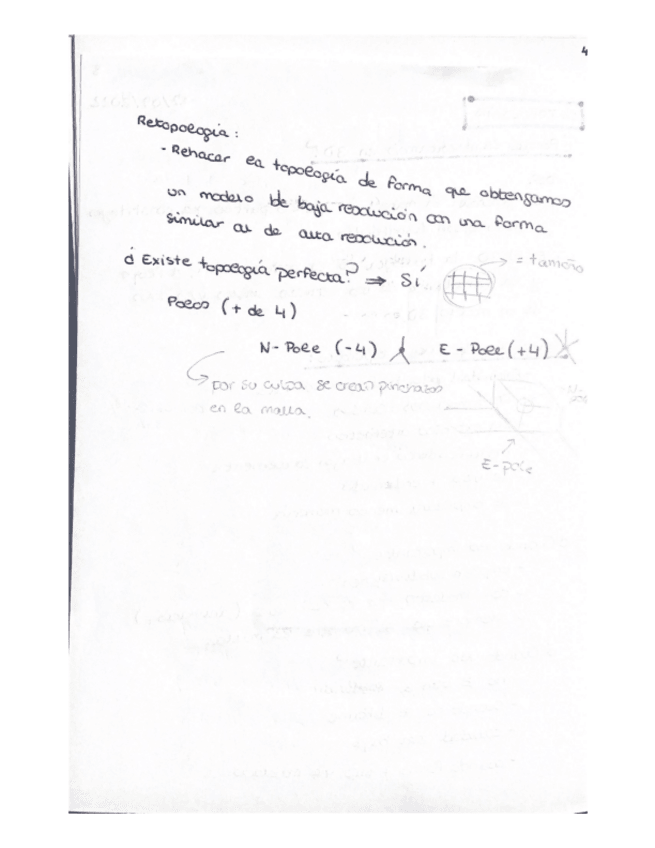 4
Retopología:
- Rehacer la topología de forma que obtengamos
un modelo de baja resolución con una forma
similar al de alta resolución.
¿Existe topología perfecta? ⇒ Sí → = tamaño
Polos (+ de 4)
N-Pole (-4) E-Pole (+4)
por su culpa se crean pinchazos
en la malla.
E-pole